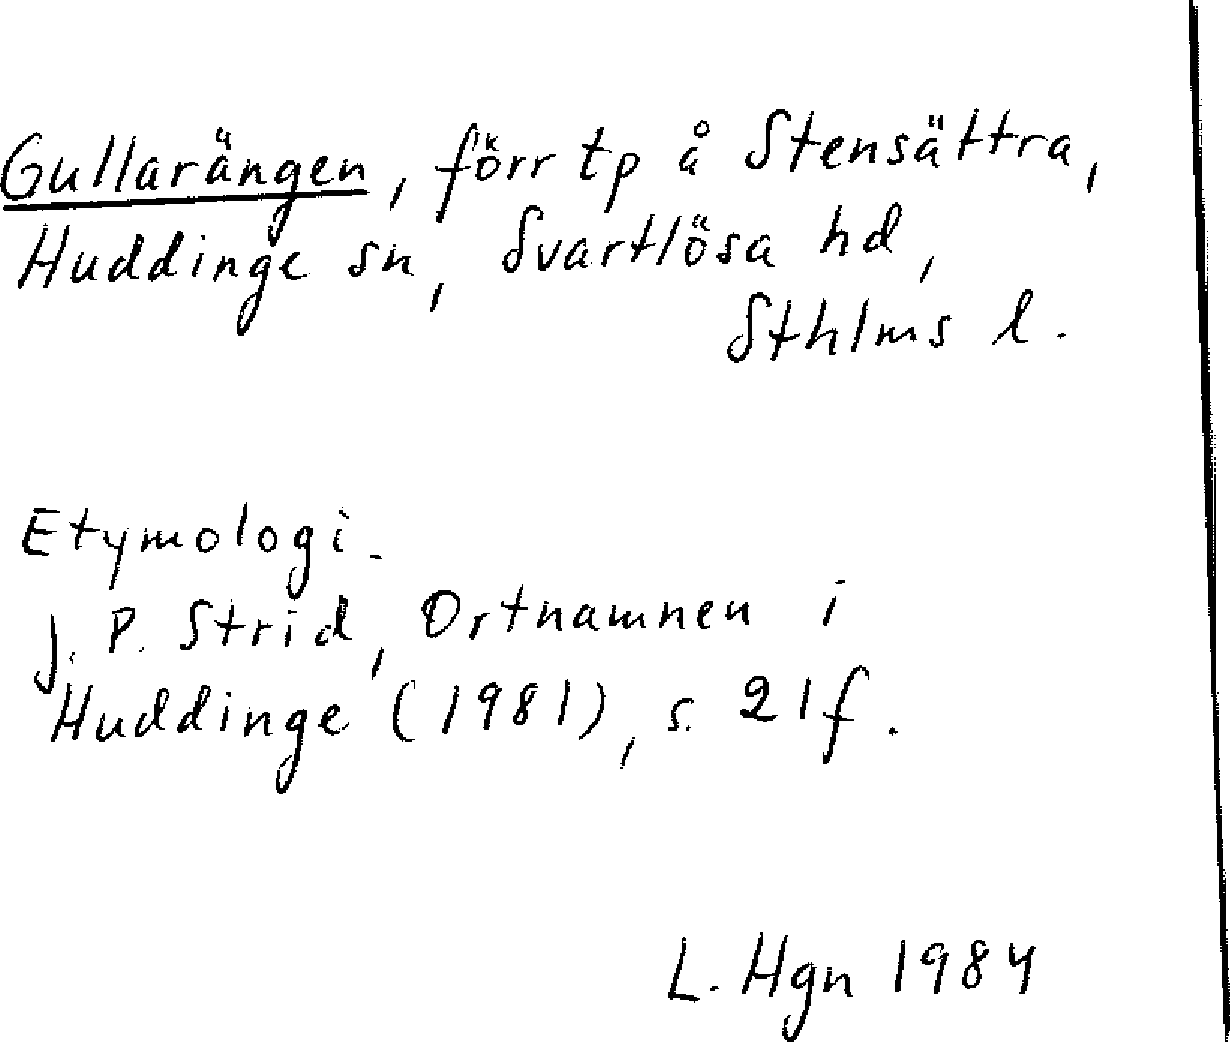 Gullarängen, förr tp å Stensättra,
Huddinge sn, Svartlösa hd,
Sthlms l.
Etymologi.
J. P. Strid, Ortnamnen i
Huddinge (1981), s. 21f.
L. Hgn 1984